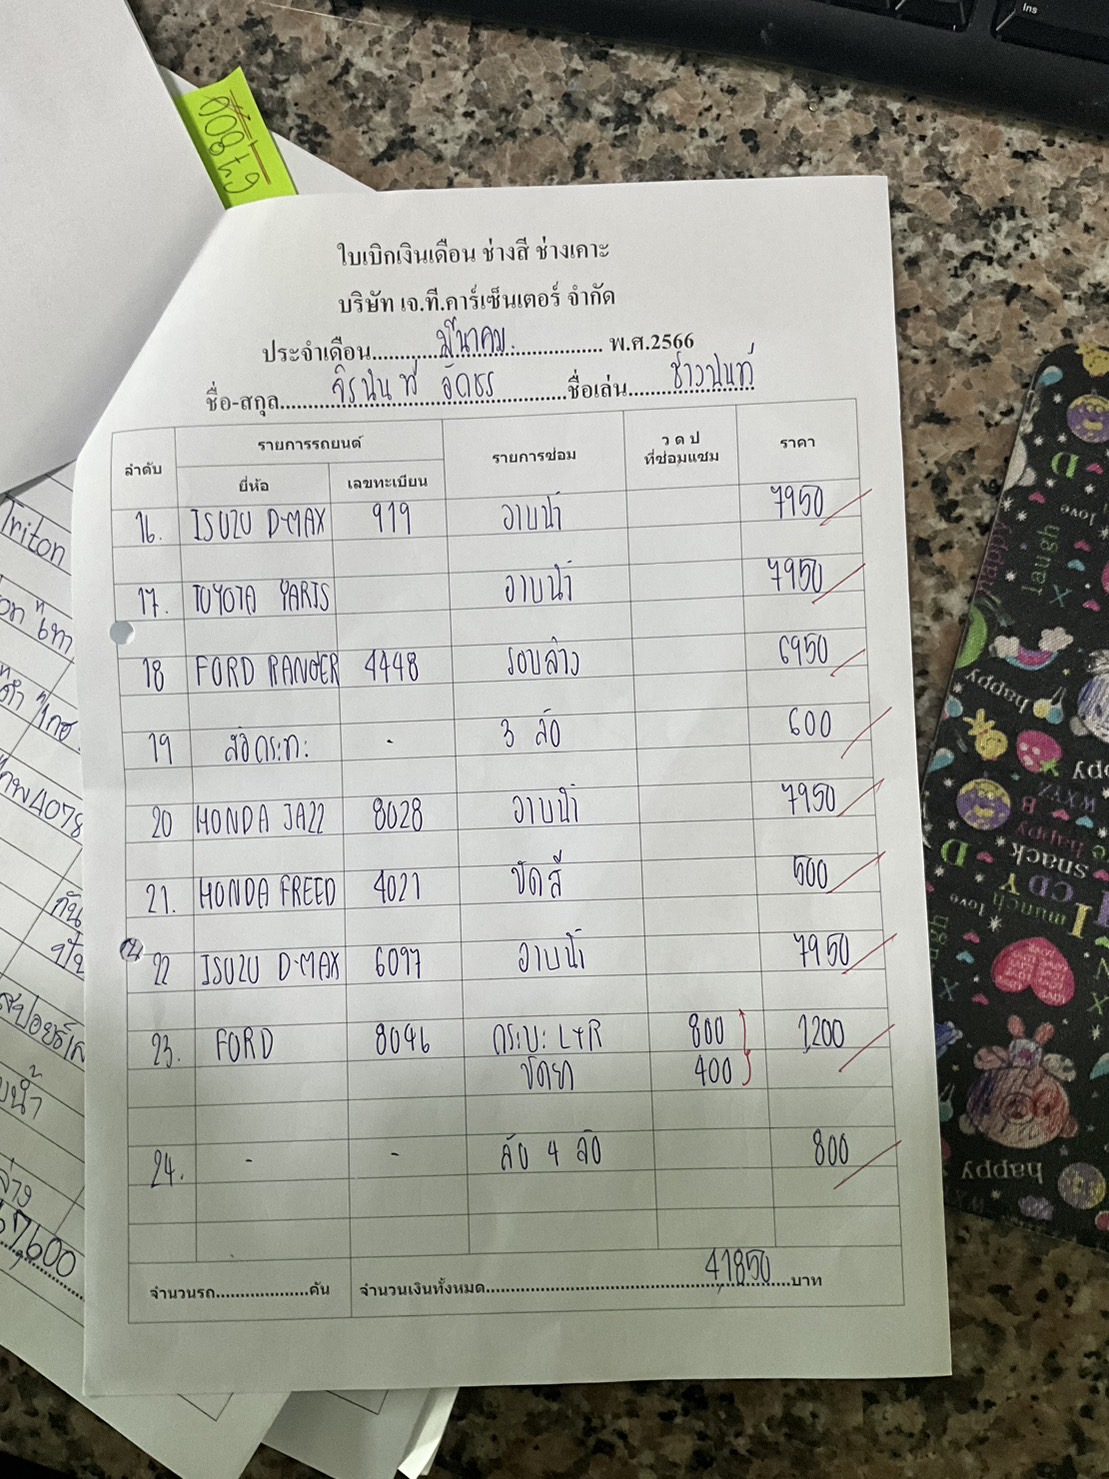 Ins
ใบเบิกเงินเดือน ช่างสี ช่างเคาะ
บริษัท เจ.ที.คาร์เซ็นเตอร์ จำกัด
ประจำเดือน....มีนาคม....พ.ศ.2566
ชื่อ-สกุล....จิรนันท์....ชื่อเล่น....
ลำดับ รายการรถยนต์ รายการซ่อม ว ด ป ที่ซ่อมแซม ราคา
ยี่ห้อ เลขทะเบียน
16. ISUZU D-MAX 919 อาบน้ำ 7950
17. TOYOTA YARIS อาบน้ำ 7950
18 FORD RANGER 4448 รอบล่าง 6950
19 - 3 600
20 HONDA JAZZ 8028 อาบน้ำ 7950
21. HONDA FREED 4021 ขัดสี 500
22 ISUZU D-MAX 6097 อาบน้ำ 7950
23. FORD 8046 กระบะ L+R 800 1,200
400
24. - - 4 800
จำนวนรถ....คัน จำนวนเงินทั้งหมด....41,850....บาท
Triton
4078
กัน
อาบน้ำ
67,600
laugh
love
happy
snack
munch
happy